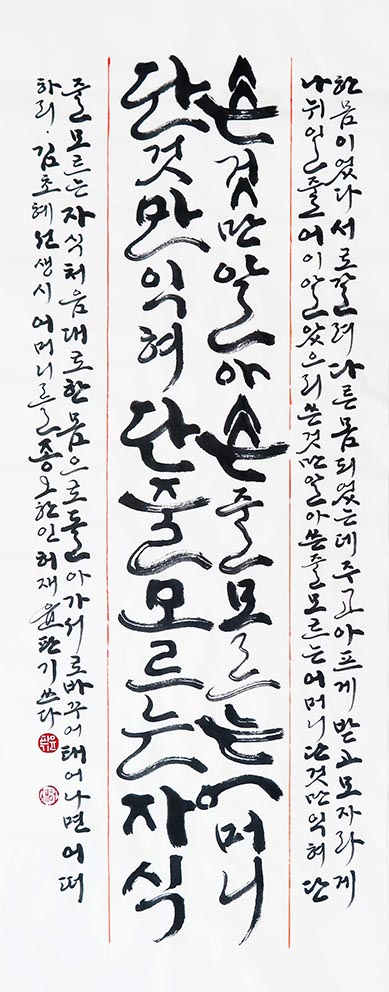 한 몸이었다 서로 갈려 다른 몸 되었는데 주고 아프게 받고 모자라게
나뉘일 줄 어이 알았으리 쓴 것만 알아 쓴 줄 모르는 어머니 단 것만 익혀 단
쓴 것만 알아 쓴 줄 모르는 어머니
단 것만 익혀 단 줄 모르는 자식
줄 모르는 자식 처음대로 한 몸으로 돌아가 서로 바꾸어 태어나면 어떠
하리 · 김초혜 선생 시 어머니를 종오한인 허재 윤판기 쓰다